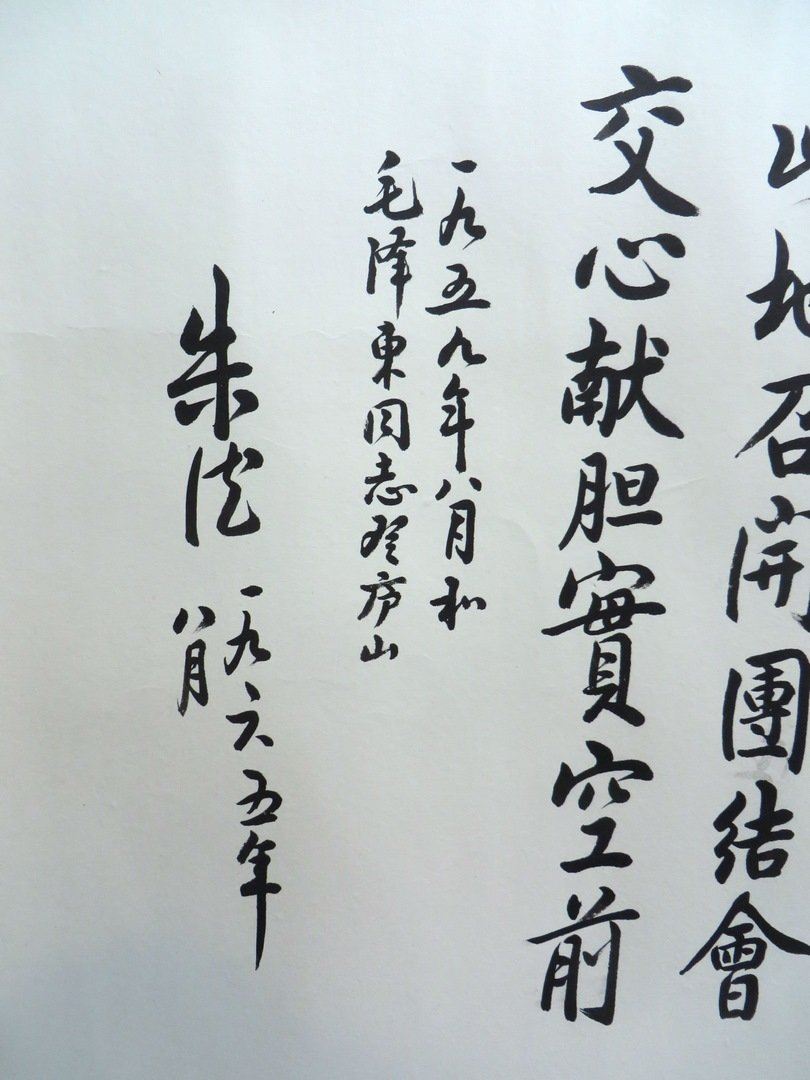 山地召開團結會
交心献胆實空前
一九五九年八月和
毛泽东同志登庐山
朱德
一九六五年
八月